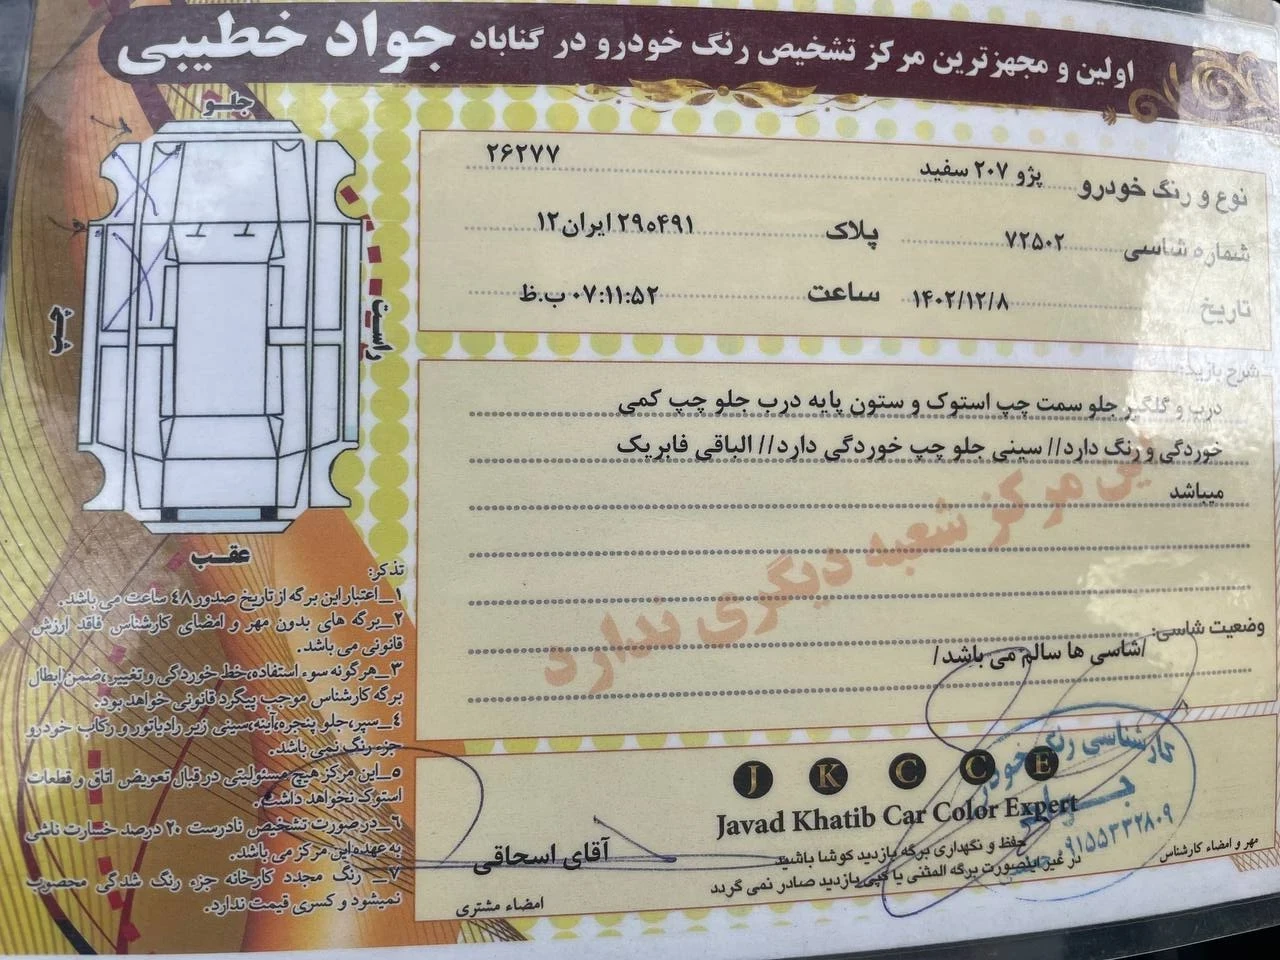 اولین و مجهزترین مرکز تشخیص رنگ خودرو در گناباد جواد خطیبی
جلو
راست
چپ
عقب
نوع و رنگ خودرو پژو ۲۰۷ سفید ۲۶۲۷۷
شماره شاسی ۷۲۵۰۲ پلاک ۲۹ه۴۹۱ ایران۱۲
تاریخ ۱۴۰۲/۱۲/۸ ساعت ۰۷:۱۱:۵۲ ب.ظ
شرح بازدید:
درب و گلگیر جلو سمت چپ استوک و ستون پایه درب جلو چپ کمی
خوردگی و رنگ دارد// سینی جلو چپ خوردگی دارد// الباقی فابریک
میباشد
این مرکز شعبه دیگری ندارد
وضعیت شاسی:
/شاسی ها سالم می باشد/
تذکر:
۱_اعتبار این برگه از تاریخ صدور ۴۸ ساعت می باشد.
۲_برگه های بدون مهر و امضای کارشناس فاقد ارزش
قانونی می باشد.
۳_هرگونه سوء استفاده،خط خوردگی و تغییر،ضمن ابطال
برگه کارشناس موجب پیگرد قانونی خواهد بود.
۴_سپر،جلو پنجره،آینه،سینی زیر رادیاتور و رکاب خودرو
جزء رنگ نمی باشد.
۵_این مرکز هیچ مسئولیتی در قبال تعویض اتاق و قطعات
استوک نخواهد داشت.
۶_در صورت تشخیص نادرست ۲۰ درصد خسارت ناشی
به عهده این مرکز می باشد.
۷_رنگ مجدد کارخانه جزء رنگ شدگی محصوب
نمیشود و کسری قیمت ندارد.
J K C C E
Javad Khatib Car Color Expert
حفظ و نگهداری برگه بازدید کوشا باشید
در غیر اینصورت برگه المثنی یا کپی بازدید صادر نمی گردد
کارشناسی رنگ خودرو
۰۹۱۵۵۳۳۲۸۰۹
مهر و امضاء کارشناس
آقای اسحاقی
امضاء مشتری